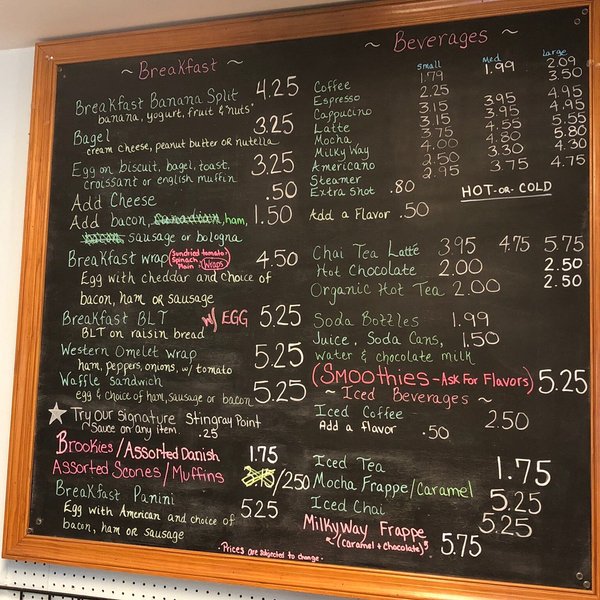 ~ Breakfast ~
Breakfast Banana Split 4.25
banana, yogurt, fruit & "nuts"
Bagel 3.25
cream cheese, peanut butter or nutella
Egg on biscuit, bagel, toast, 3.25
croissant or english muffin
Add Cheese .50
Add bacon, Canadian, ham, 1.50
bacon, sausage or bologna
Breakfast wrap (Sundried tomato, Spinach, Plain : Wraps) 4.50
Egg with cheddar and choice of
bacon, ham or sausage
Breakfast BLT w/ EGG 5.25
BLT on raisin bread
Western Omelet wrap 5.25
ham, peppers, onions, w/ tomato
Waffle Sandwich 5.25
egg & choice of ham, sausage or bacon
Try our Signature Stingray Point
Sauce on any item. .25
Brookies/Assorted Danish 1.75
Assorted Scones/Muffins /250
Breakfast Panini 525
Egg with American and choice of
bacon, ham or sausage
~ Beverages ~
Small Med Large
Coffee 1.79 1.99 2.09
Espresso 2.25 3.50
Cappucino 3.15 3.95 4.95
Latte 3.15 3.95 4.95
Mocha 3.75 4.55 5.55
Milky Way 4.00 4.80 5.80
Americano 2.50 3.30 4.30
Steamer 2.95 3.75 4.75
Extra Shot .80
HOT-OR-COLD
Add a Flavor .50
Chai Tea Latte 3.95 4.75 5.75
Hot Chocolate 2.00 2.50
Organic Hot Tea 2.00 2.50
Soda Bottles 1.99
Juice, Soda Cans, 1.50
water & chocolate milk
(Smoothies - Ask For Flavors) 5.25
~ Iced Beverages ~
Iced Coffee 2.50
Add a flavor .50
Iced Tea 1.75
Mocha Frappe/Caramel 5.25
Iced Chai 5.25
MilkyWay Frappe 5.75
(Caramel + Chocolate)
• Prices are subjected to change •